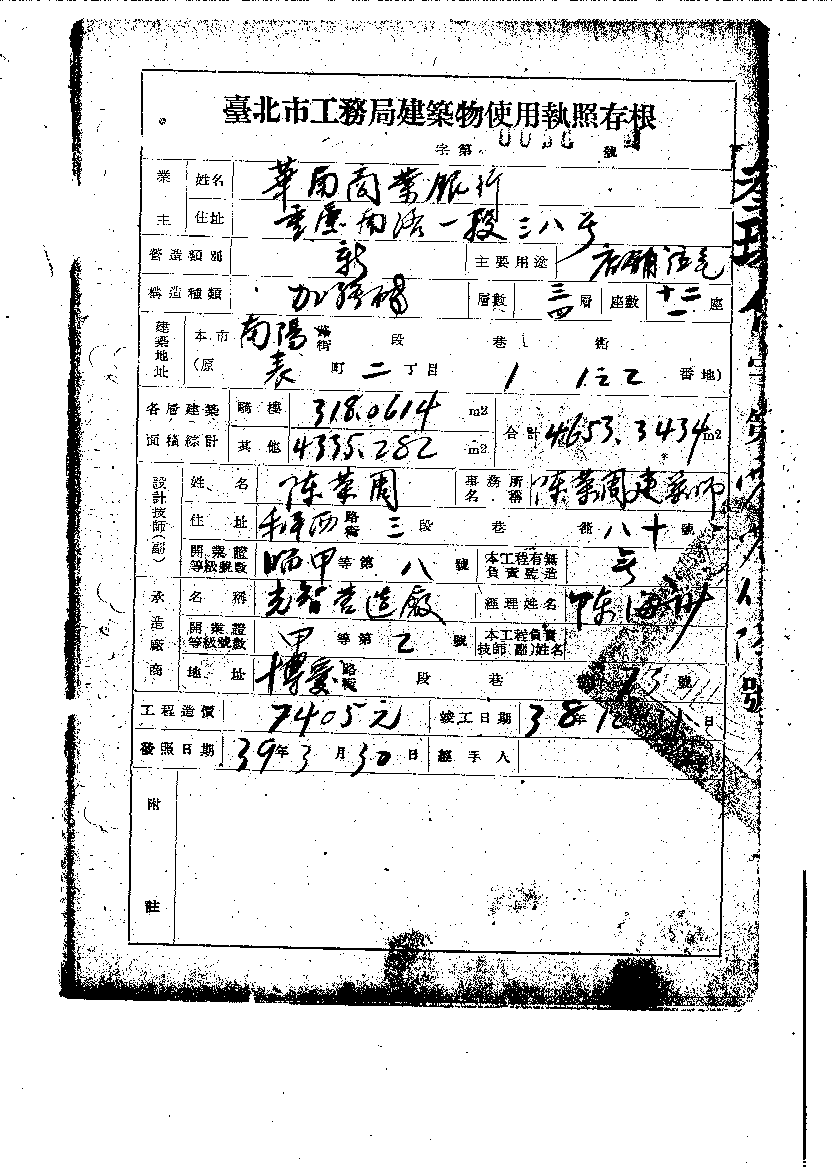 臺北市工務局建築物使用執照存根
字第 號
業主 姓名 華南商業銀行
住址 重慶南路一段三八号
營造類別 新 主要用途 店鋪住宅
構造種類 加強磚 層數 三 四 層 座數 十二 一 座
建築地址 本市 南陽 路街 段 巷 衖
(原 表 町 二 丁目 1 番地)
各層建築面積綜計 騎樓 318.0614 m2 合計 4653.3434 m2
其他 4335.282 m2
設計技師(副) 姓名 陈荣周 事務所名稱 陈荣周建築師
住址 西 路街 三 段 巷 衖 八十 號
開業證等級號數 師甲 等第 八 號 本工程有無負責監造
承造廠商 名稱 光智营造廠 經理姓名 陈海
開業證等級號數 甲 等第 2 號 本工程負責技師(副)姓名
地址 博愛 路街 段 巷 號
工程造價 7405元 竣工日期 38年 日
發照日期 39年3月30日 經手人
附註